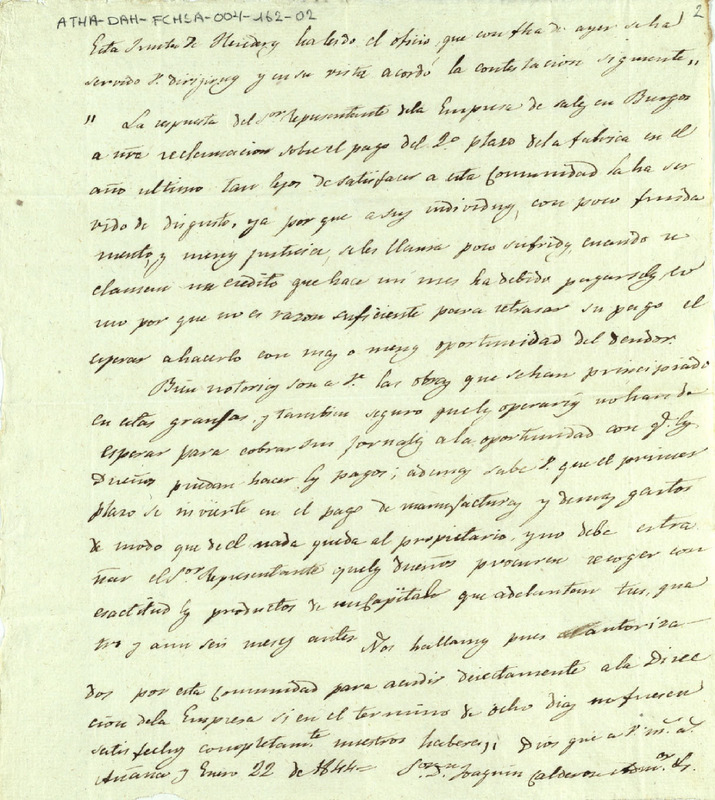 ATHA-DAH-FCHSA-004-162-02
2
Esta Junta de Hered.s ha leido el oficio, que con fha de ayer se ha
servido V. dirijirnos y en su vista acordó la contestacion siguiente,,
" La respuesta del Sor Representante dela Empresa de sales en Burgos
a nra reclamacion sobre el pago del 2.º plazo dela fabrica en el
año ultimo tan lejos de satisfacer a esta Comunidad la ha ser
vido de disgusto, ya por que a sus individuos, con poco funda
mento, y menos justicia, se les llama poco sufridos, cuando re
claman un credito que hace un mes ha debido pagarseles, co
mo por que no es razon suficiente para retrasar su pago el
esperar a hacerlo con mas o menos oportunidad del deudor.
Bien notorias son a V. las obras que se han principiado
en estas granjas, y tambien seguro que los operarios no han de
esperar para cobrar sus jornales a la oportunidad con q.e los
Dueños puedan hacer los pagos; ademas sabe V. que el primer
plazo se invierte en el pago de manufacturas y demas gastos
de modo que de el nada queda al propietario, y no debe estra
ñar el Sor Representante que los dueños procuren recoger con
esactitud los productos de un Capital que adelantan tres, qua
tro y aun seis meses antes. Nos hallamos pues autoriza
dos por esta Comunidad para acudir directamente a la Direc
cion dela Empresa si en el termino de ocho dias no fuesen
satisfechos completam.te nuestros haberes,, Dios gue a V. m.s a.s
Añana y Enero 22 de 1844= Sor D. Joaquin Calderon